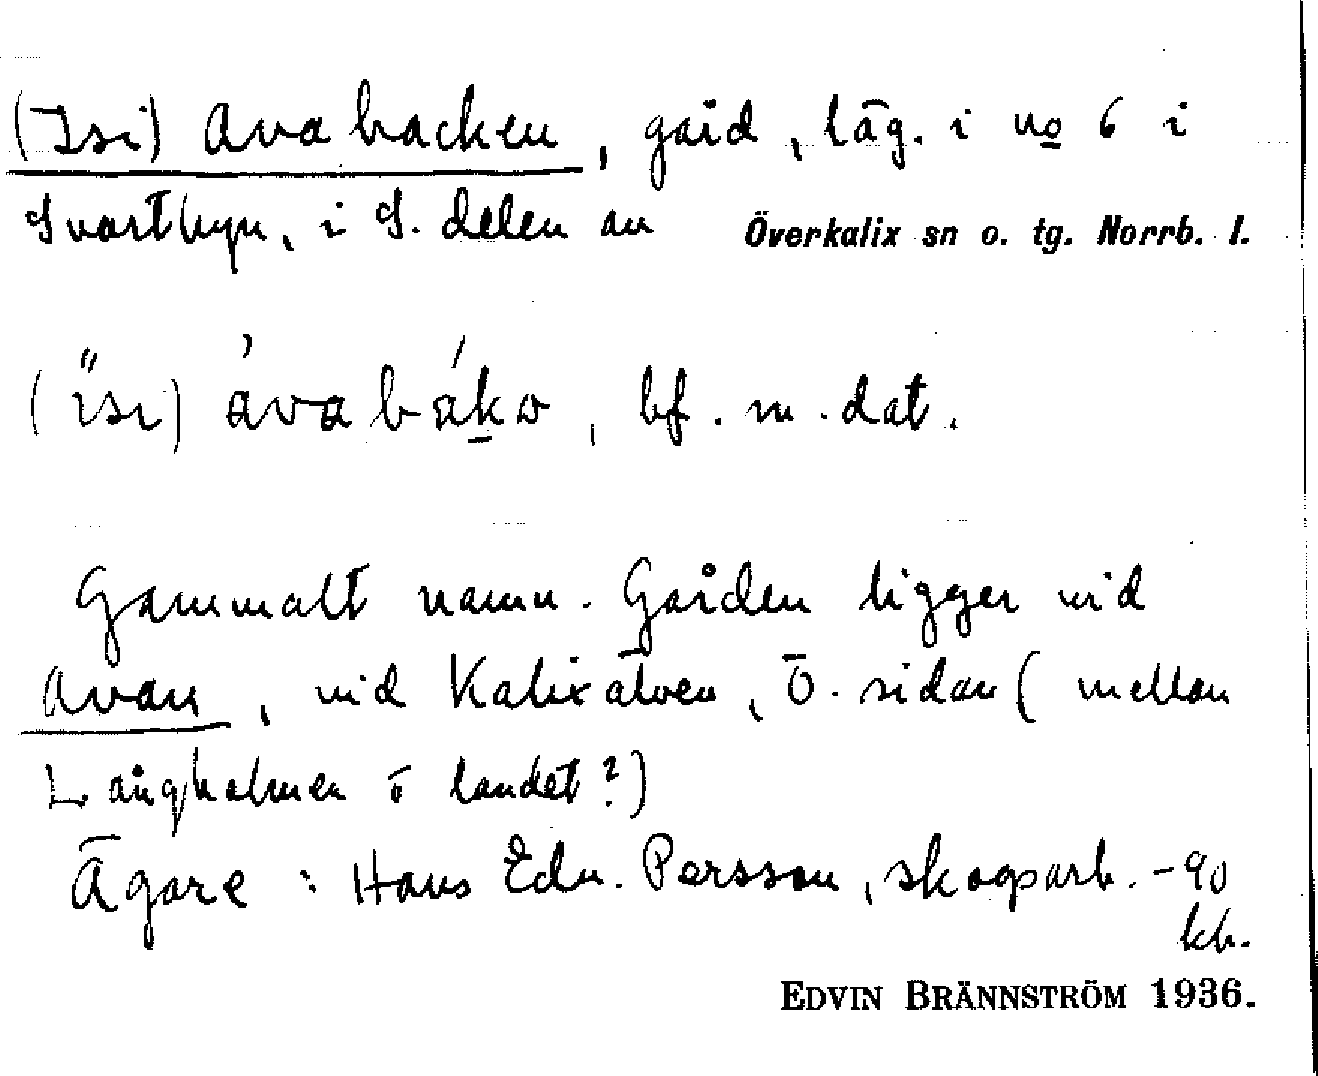 (Isi) Avabacken, gård, läg. i no 6 i
Svartbyn, i S. delen av Överkalix sn o. tg. Norrb. l.
(ïsi) ávabákο, bf. m. dat.
Gammalt namn. Gården ligger vid
Avan, vid Kalixälven, Ö. sidan (mellan
Långholmen o landet?)
Ägare: Hans Edv. Persson, skogsarb. - 90
kb.
EDVIN BRÄNNSTRÖM 1936.